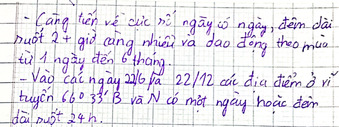 - Càng tiến về cực số ngày có ngày, đêm dài
suốt 24 giờ càng nhiều và dao động theo mùa
từ 1 ngày đến 6 tháng.
- Vào các ngày 22/6 và 22/12 các địa điểm ở vĩ
tuyến 66°33'B và N có một ngày hoặc đêm
dài suốt 24h.